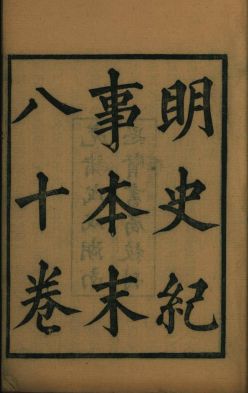 明史紀
事本末
八十卷